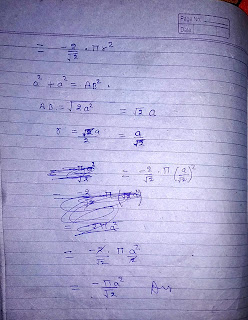 Page No.
Date
= -2/√2 · πr²
a² + a² = AB² .
AB = √2a² = √2 a
r = √2a/2 = a/√2
= -2/√2 · π (a/√2)²
= -2/√2 · π a²/2
= -πa²/√2 Ans